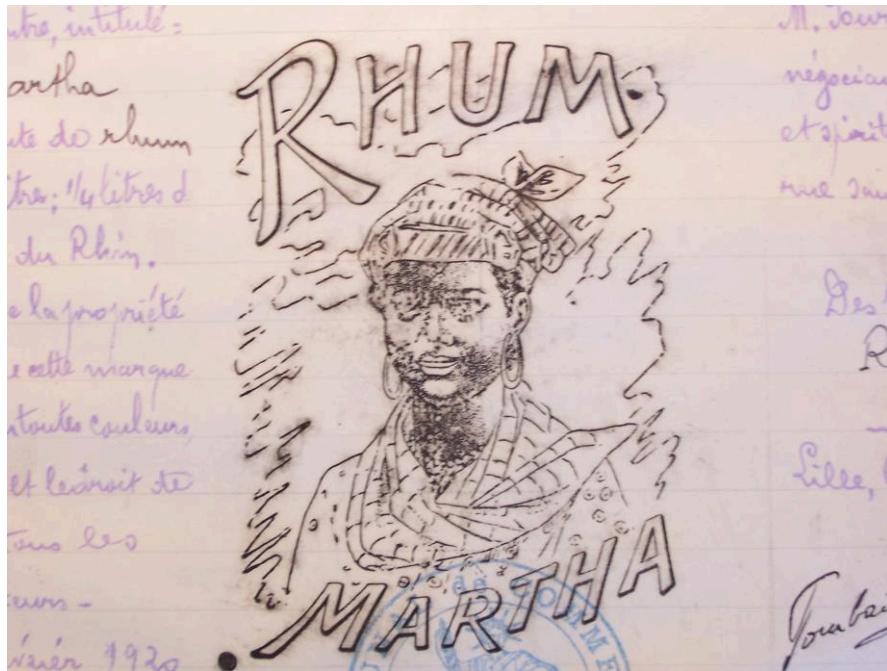 utre, intitulé =
artha
rhum
itres; 1/4 litres d
du Rhin.
e la propriété
e cette marque
toutes couleurs,
et le droit de
tous les
eurs -
vrier 1920
RHUM
MARTHA
de COMME
M. Tour
négocian
et spirit
rue Sai
Des
R
Lille,